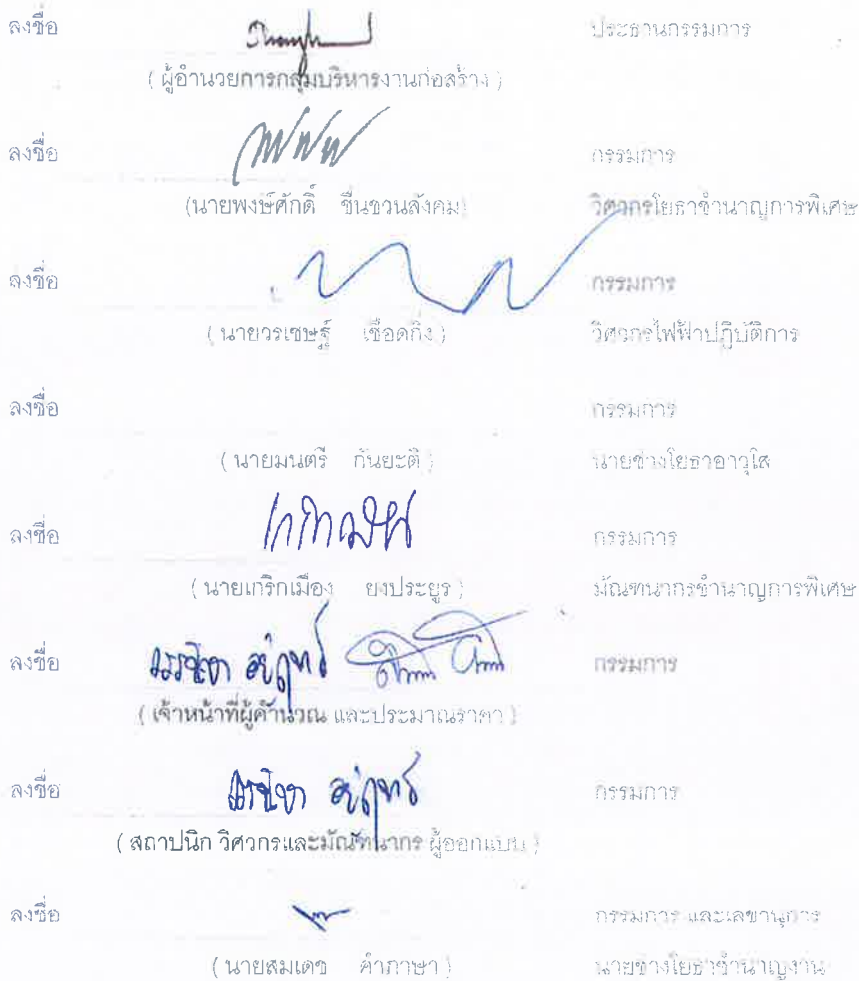 ลงชื่อ ประธานกรรมการ
( ผู้อำนวยการกลุ่มบริหารงานก่อสร้าง )
ลงชื่อ กรรมการ
(นายพงษ์ศักดิ์ ชื่นชวนสังคม) วิศวกรโยธาชำนาญการพิเศษ
ลงชื่อ กรรมการ
( นายวรเชษฐ์ เชือดกิ่ง ) วิศวกรไฟฟ้าปฏิบัติการ
ลงชื่อ กรรมการ
( นายมนตรี กันยะติ ) นายช่างโยธาอาวุโส
ลงชื่อ กรรมการ
( นายเกริกเมือง ยงประยูร ) มัณฑนากรชำนาญการพิเศษ
ลงชื่อ กรรมการ
( เจ้าหน้าที่ผู้คำนวณ และประมาณราคา )
ลงชื่อ กรรมการ
( สถาปนิก วิศวกรและมัณฑนากร ผู้ออกแบบ )
ลงชื่อ กรรมการ และเลขานุการ
( นายสมเดช คำภาษา ) นายช่างโยธาชำนาญงาน